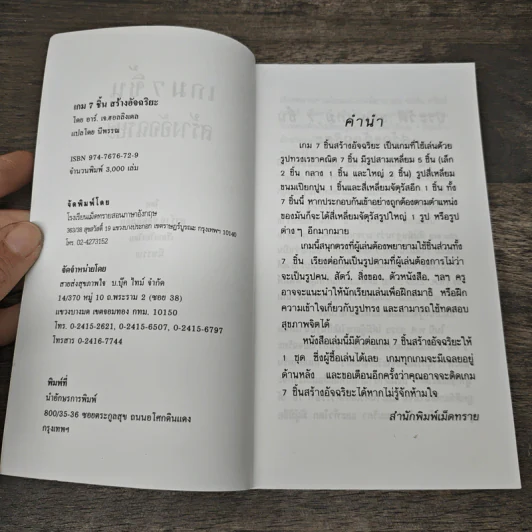 เกม 7 ชิ้น สร้างอัจฉริยะ
โดย อาร์. เจ.ฮอลลิงเดล
แปลโดย นีพรรณ
ISBN 974-7676-72-9
จำนวนพิมพ์ 3,000 เล่ม
จัดพิมพ์โดย
โรงเรียนเม็ดทรายสอนภาษาอังกฤษ
363/38 สุขสวัสดิ์ 19 แขวงบางปะกอก เขตราษฎร์บูรณะ กรุงเทพฯ 10140
โทร. 02-4273152
จัดจำหน่ายโดย
สายส่งสุขภาพใจ บ.บุ๊ค ไทม์ จำกัด
14/370 หมู่ 10 ถ.พระราม 2 (ซอย 38)
แขวงบางมด เขตจอมทอง กทม. 10150
โทร. 0-2415-2621, 0-2415-6507, 0-2415-6797
โทรสาร 0-2416-7744
พิมพ์ที่
นำอักษรการพิมพ์
800/35-36 ซอยตระกูลสุข ถนนอโศกดินแดง
กรุงเทพฯ
คำนำ
เกม 7 ชิ้นสร้างอัจฉริยะ เป็นเกมที่ใช้เล่นด้วย
รูปทรงเรขาคณิต 7 ชิ้น มีรูปสามเหลี่ยม 5 ชิ้น (เล็ก
2 ชิ้น กลาง 1 ชิ้น และใหญ่ 2 ชิ้น) รูปสี่เหลี่ยม
ขนมเปียกปูน 1 ชิ้นและสี่เหลี่ยมจัตุรัสอีก 1 ชิ้น ทั้ง
7 ชิ้นนี้ หากประกอบกันเข้าอย่างถูกต้องตามตำแหน่ง
ของมันก็จะได้สี่เหลี่ยมจัตุรัสรูปใหญ่ 1 รูป หรือรูป
ต่าง ๆ อีกมากมาย
เกมนี้สนุกตรงที่ผู้เล่นต้องพยายามใช้ชิ้นส่วนทั้ง
7 ชิ้น เรียงต่อกันเป็นรูปตามที่ผู้เล่นต้องการไม่ว่า
จะเป็นรูปคน, สัตว์, สิ่งของ, ตัวหนังสือ, ฯลฯ ครู
อาจจะแนะนำให้นักเรียนเล่นเพื่อฝึกสมาธิ หรือฝึก
ความเข้าใจเกี่ยวกับรูปทรง และสามารถใช้ทดสอบ
สุขภาพจิตได้
หนังสือเล่มนี้มีตัวต่อเกม 7 ชิ้นสร้างอัจฉริยะให้
1 ชุด ซึ่งผู้ซื้อเล่นได้เลย เกมทุกเกมจะมีเฉลยอยู่
ด้านหลัง และขอเตือนอีกครั้งว่าคุณอาจจะติดเกม
7 ชิ้นสร้างอัจฉริยะได้หากไม่รู้จักห้ามใจ
สำนักพิมพ์เม็ดทราย